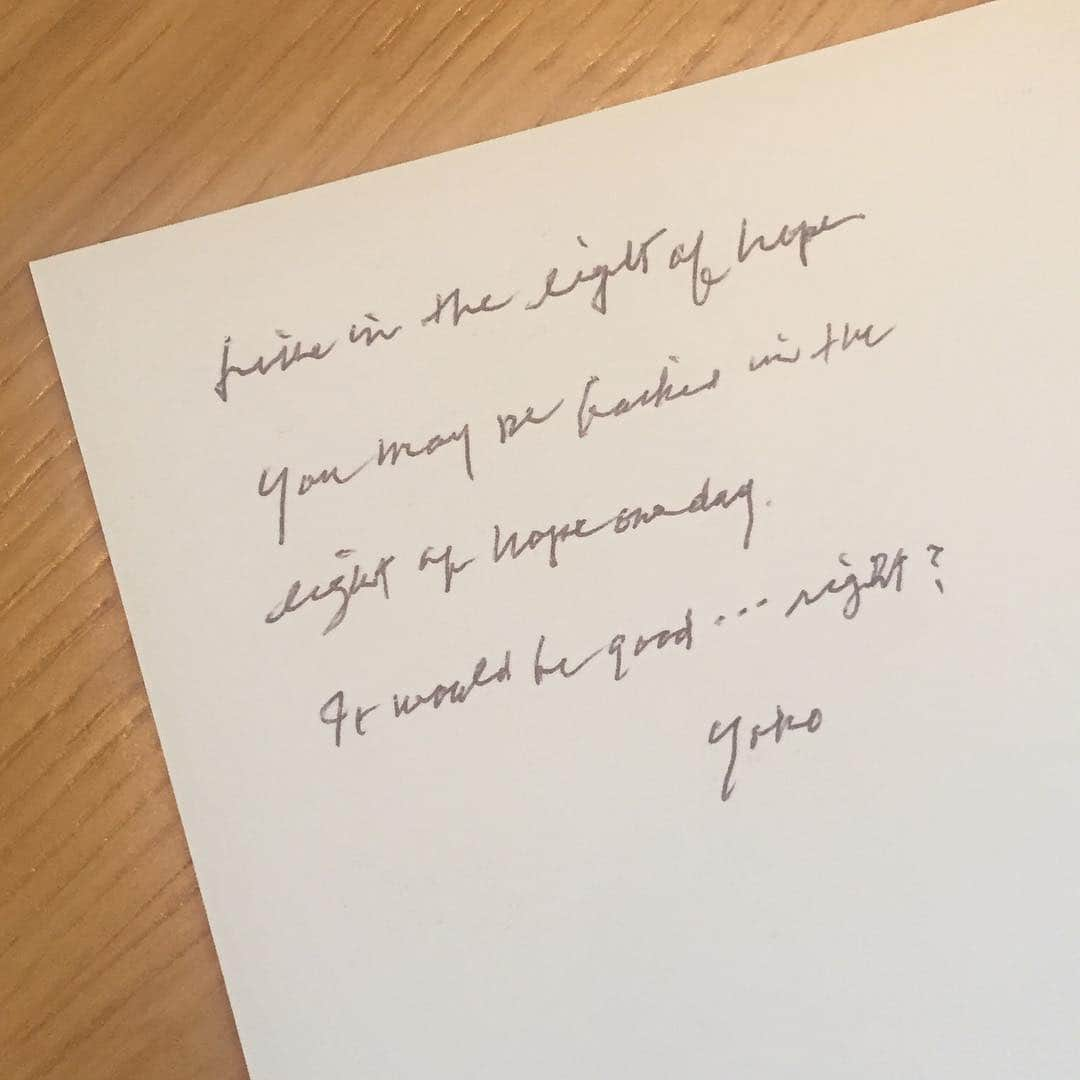 Live in the light of hope
You may be basked in the
light of hope one day.
It would be good... right?
Yoko